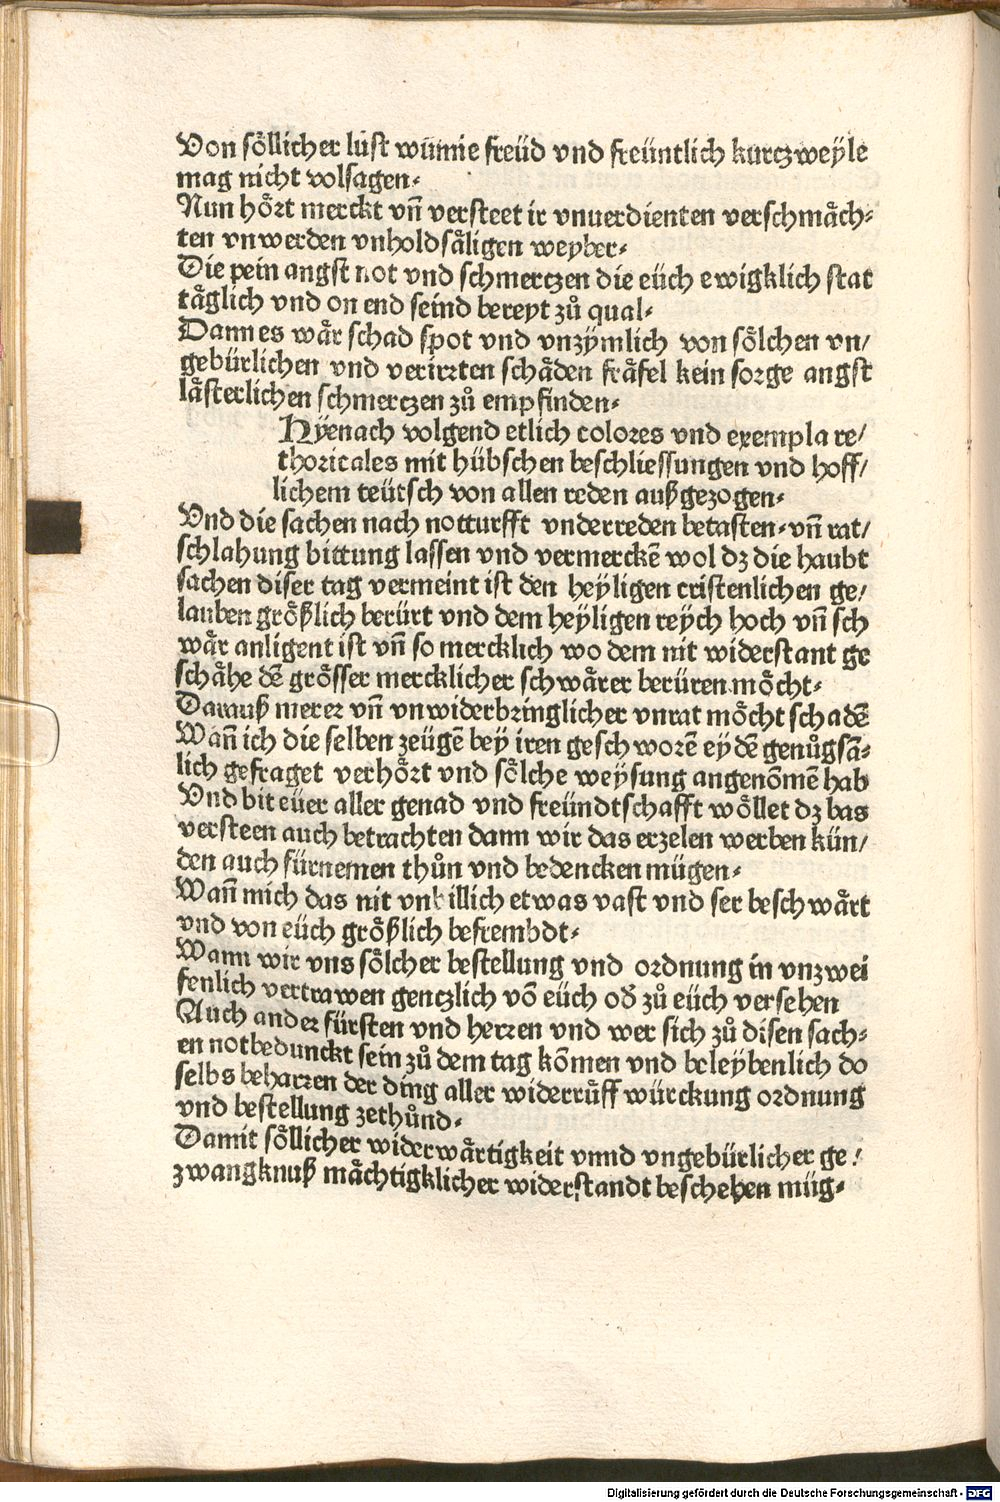 Von soͤllicher lust wunne freüd vnd freüntlich kurczweyle
mag nicht volsagen.
Nun hoͤrt merckt vn̄ versteet ir vnuerdienten verschmaͤch⸗
ten vnwerden vnholdsaͤligen weyber.
Die pein angst not vnd schmerczen die eüch ewigklich stat
taͤglich vnd on end seind bereyt zuͦ qual.
Dann es waͤr schad spot vnd vnzymlich von soͤlchen vn/
gebürlichen vnd verirrten schaͤden fraͤfel kein sorge angst
laͤsterlichen schmerczen zuͦ empfinden.
Hyenach volgend etlich colores vnd exempla re/
thoricales mit hübschen beschliessungen vnd hoff/
lichem teütsch von allen reden außgezogen.
Vnd die sachen nach notturfft vnderreden betasten. vn̄ rat/
schlahung bittung lassen vnd vermerckē wol dz die haubt
sachen diser tag vermeint ist den heyligen cristenlichen ge/
lauben groͤßlich berürt vnd dem heyligen reych hoch vn̄ sch
waͤr anligent ist vn̄ so mercklich wo dem nit widerstant ge
schaͤhe dē groͤsser mercklicher schwaͤrer berüren moͤcht.
Darauß merer vn̄ vnwiderbringlicher vnrat moͤcht schadē
Wān ich die selben zeügē bey iren geschworē eydē genuͦgsā⸗
lich gefraget verhoͤrt vnd soͤlche weysung angenōmē hab
Vnd bit eüer aller genad vnd freündtschafft woͤllet dz bas
versteen auch betrachten dann wir das erzelen werben kün/
den auch fürnemen thuͦn vnd bedencken mügen.
Wān mich das nit vnbillich etwas vast vnd ser beschwaͤrt
vnd von eüch groͤßlich befrembdt.
Wann wir vns soͤlcher bestellung vnd ordnung in vnzwei
fenlich vertrawen genczlich vō eüch od̄ zuͦ eüch versehen
Auch ander fürsten vnd herren vnd wer sich zuͦ disen sach⸗
en notbedunckt sein zuͦ dem tag kōmen vnd beleybenlich do
selbs beharren der ding aller widerruͤff würckung ordnung
vnd bestellung zethuͦnd.
Damit soͤllicher widerwaͤrtigkeit vnnd vngebürlicher ge/
zwangknuß maͤchtigklicher widerstandt beschehen müg⸗
Digitalisierung gefördert durch die Deutsche Forschungsgemeinschaft - DFG